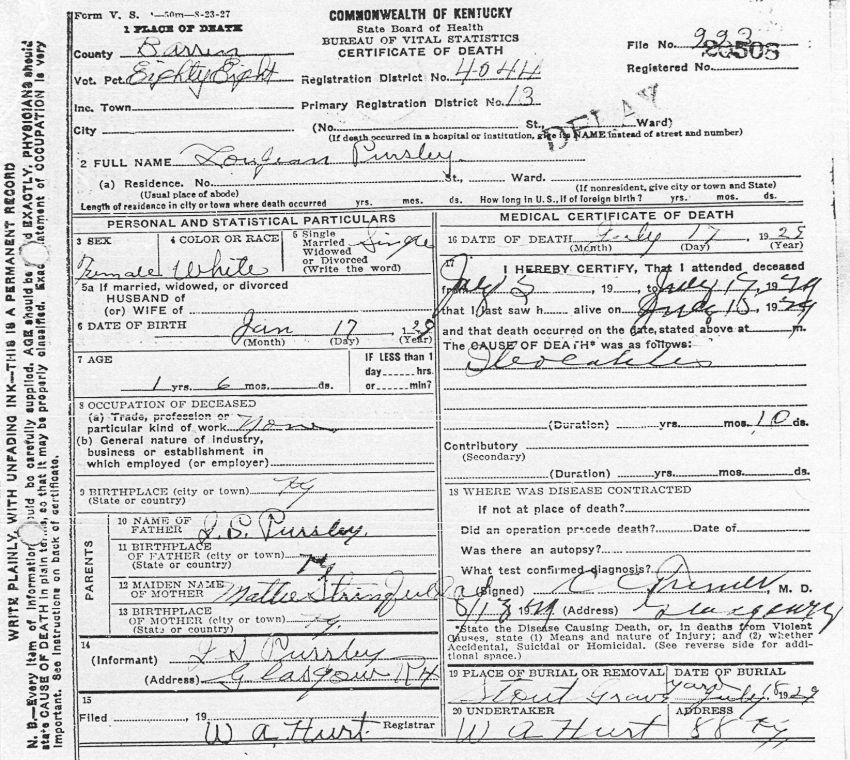 Form V. S. 1—50m—8-23-27
COMMONWEALTH OF KENTUCKY
State Board of Health
BUREAU OF VITAL STATISTICS
CERTIFICATE OF DEATH
1 PLACE OF DEATH
County Barren
Vot. Pct. Eighty Eight
Inc. Town
City
File No. 993
20508
Registered No.
Registration District No. 4044
Primary Registration District No. 13
DELAY
(No. St., Ward)
(If death occurred in a hospital or institution, give its NAME instead of street and number)
2 FULL NAME Pursley
(a) Residence. No. St., Ward.
(Usual place of abode) (If nonresident, give city or town and State)
Length of residence in city or town where death occurred yrs. mos. ds. How long in U.S., if of foreign birth? yrs. mos. ds.
PERSONAL AND STATISTICAL PARTICULARS
3 SEX
Female
4 COLOR OR RACE
White
5 Single
Married
Widowed
or Divorced
(Write the word)
Single
5a If married, widowed, or divorced
HUSBAND of
(or) WIFE of
6 DATE OF BIRTH Jan 17 1928
(Month) (Day) (Year)
7 AGE
1 yrs. 6 mos. ds.
IF LESS than 1
day hrs.
or min?
8 OCCUPATION OF DECEASED
(a) Trade, profession or
particular kind of work None
(b) General nature of industry,
business or establishment in
which employed (or employer)
9 BIRTHPLACE (city or town) Ky
(State or country)
PARENTS
10 NAME OF
FATHER J. S. Pursley
11 BIRTHPLACE
OF FATHER (city or town) Ky
(State or country)
12 MAIDEN NAME
OF MOTHER Mattie Stringfield
13 BIRTHPLACE
OF MOTHER (city or town) Ky.
(State or country)
14
(Informant) J S Pursley
(Address) Glasgow R4
15
Filed 19
W A Hurt Registrar
MEDICAL CERTIFICATE OF DEATH
16 DATE OF DEATH July 17 1929
(Month) (Day) (Year)
17
I HEREBY CERTIFY, That I attended deceased
from July 5, 19 , to July 17, 1929
that I last saw h alive on July 15, 1929
and that death occurred on the date, stated above at m.
The CAUSE OF DEATH* was as follows:
Ileocolitis
(Duration) yrs. mos. 10 ds.
Contributory
(Secondary)
(Duration) yrs. mos. ds.
18 WHERE WAS DISEASE CONTRACTED
If not at place of death?
Did an operation precede death? Date of
Was there an autopsy?
What test confirmed diagnosis?
(Signed) C C , M. D.
1929 (Address)
*State the Disease Causing Death, or, in deaths from Violent
Causes, state (1) Means and nature of Injury; and (2) whether
Accidental, Suicidal or Homicidal. (See reverse side for addi-
tional space.)
19 PLACE OF BURIAL OR REMOVAL
Stout Grave yard
DATE OF BURIAL
July 18 1929
20 UNDERTAKER
W A Hurt
ADDRESS
88 Ky
WRITE PLAINLY, WITH UNFADING INK—THIS IS A PERMANENT RECORD
N. B.—Every item of information should be carefully supplied. AGE should be stated EXACTLY. PHYSICIANS should
state CAUSE OF DEATH in plain terms, so that it may be properly classified. Exact statement of OCCUPATION is very
important. See instructions on back of certificate.